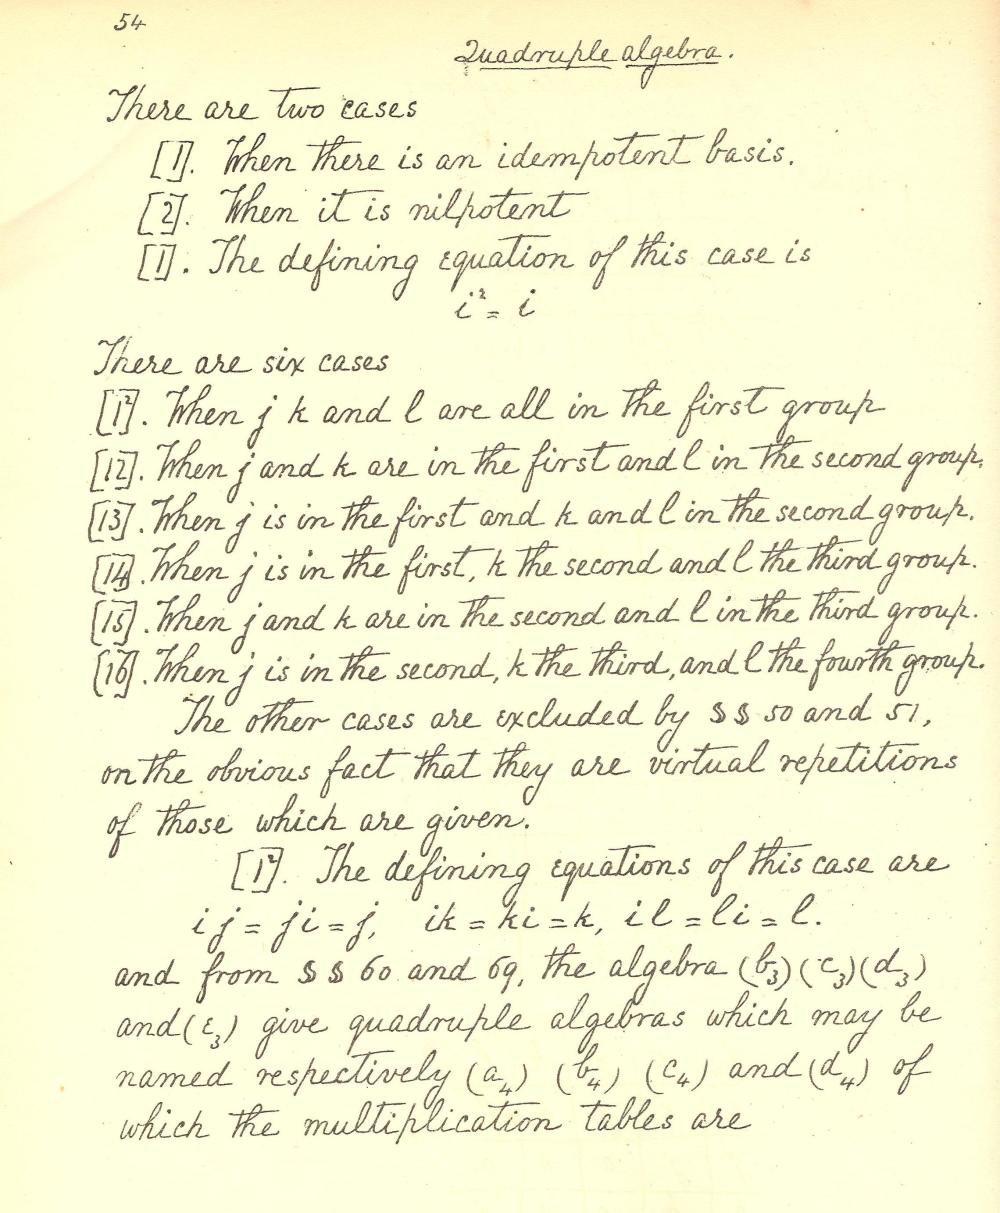 54
Quadruple algebra.
There are two cases
[1]. When there is an idempotent basis.
[2]. When it is nilpotent
[1]. The defining equation of this case is
i² = i
There are six cases
[1²]. When j k and l are all in the first group
[12]. When j and k are in the first and l in the second group.
[13]. When j is in the first and k and l in the second group.
[14]. When j is in the first, k the second and l the third group.
[15]. When j and k are in the second and l in the third group.
[16]. When j is in the second, k the third, and l the fourth group.
The other cases are excluded by §§ 50 and 51,
on the obvious fact that they are virtual repetitions
of those which are given.
[1²]. The defining equations of this case are
ij = ji = j, ik = ki = k, il = li = l.
and from §§ 60 and 69, the algebra (b₃) (c₃) (d₃)
and (e₃) give quadruple algebras which may be
named respectively (a₄) (b₄) (c₄) and (d₄) of
which the multiplication tables are